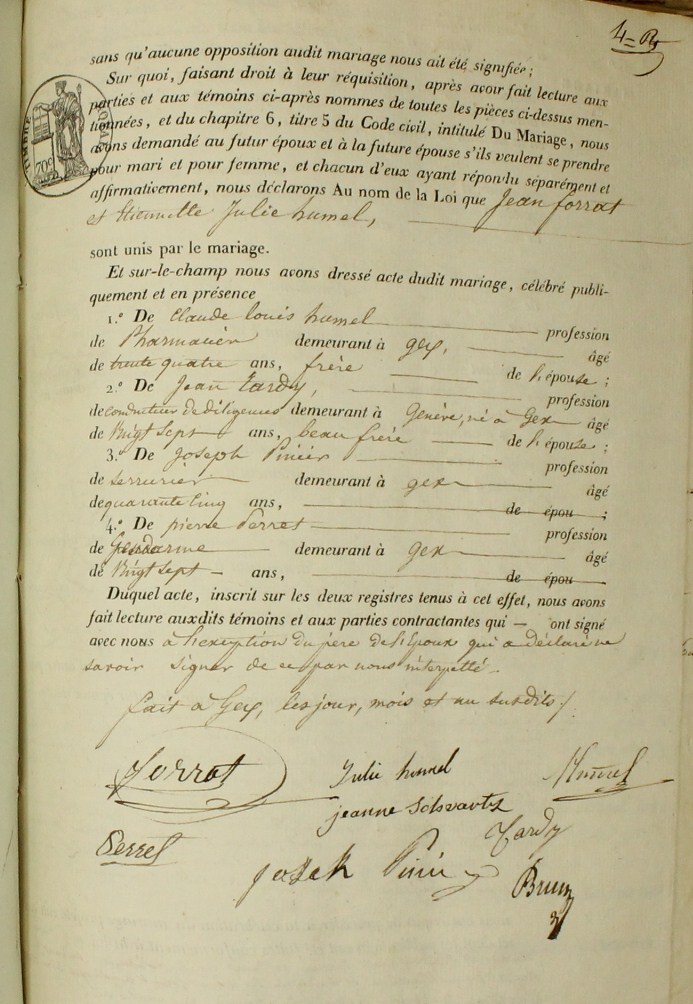 4=
sans qu'aucune opposition audit mariage nous ait été signifiée ;
Sur quoi, faisant droit à leur réquisition, après avoir fait lecture aux
parties et aux témoins ci-après nommes de toutes les pièces ci-dessus men-
tionnées, et du chapitre 6, titre 5 du Code civil, intitulé Du Mariage, nous
avons demandé au futur époux et à la future épouse s'ils veulent se prendre
pour mari et pour femme, et chacun d'eux ayant répondu séparément et
affirmativement, nous déclarons Au nom de la Loi que Jean forrat
et Julie humel,
TIMBRE
70c
sont unis par le mariage.
Et sur-le-champ nous avons dressé acte dudit mariage, célébré publi-
quement et en présence
1.° De Claude louis humel profession
de Pharmacien demeurant à gex, âgé
de trente quatre ans, frère de l'épouse ;
2.° De Jean tardy, profession
de conducteur de diligences demeurant à Genève, né à Gex âgé
de Vingt Sept ans, beau frère de l'épouse ;
3.° De Joseph profession
de Serrurier demeurant à gex âgé
de quarante Cinq ans, de épou ;
4.° De pierre Perret profession
de Gendarme demeurant à Gex âgé
de Vingt Sept ans, de épou
Duquel acte, inscrit sur les deux registres tenus à cet effet, nous avons
fait lecture auxdits témoins et aux parties contractantes qui — ont signé
avec nous à l'exception du père de l'Epoux qui a déclaré ne
savoir Signer de ce par nous interpellé
fait à Gex, les jour, mois et an susdits ./.
forrat
Julie humel
Humel
jeanne Schvartz
Tardy
Perret